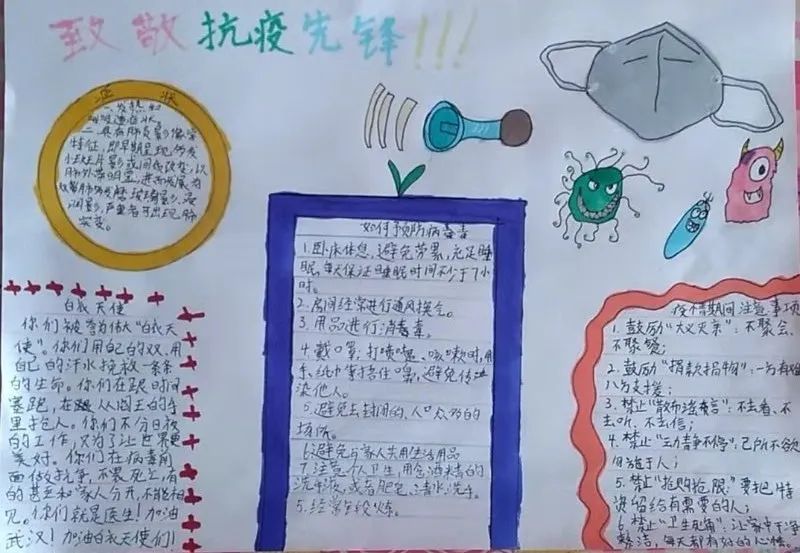 致敬抗疫先锋!!!
症状
一、发热和
呼吸道症状。
二、具有肺炎影像学
特征,即早期呈现多发
小斑片影或间质改变,以
肺外带明显,进而发展为
双肺多发磨玻璃影、浸
润影,严重者可出现肺
实变。
白衣天使
你们被誉为做“白衣天
使”。你们用自己的双
自己的汗水挽救一条条
的生命。你们在跟时间
赛跑,在跟从阎王的手
里抢人。你们不分日夜
的工作,又为了让世界更
美好。你们在病毒前
面做抗争,不畏死亡,有
的甚至和家人分开,不能相
见。你们就是医生!加油
武汉!加油白衣天使们!
如何预防病毒毒
1.卧床休息,避免劳累,充足睡
眠,每天保证睡眠时间不少于7小
时。
2.房间经常进行通风换气。
3.用品进行消毒毒。
4.戴口罩,打喷嚏、咳嗽时,用
手、纸巾掌捂住口鼻,避免传
染他人。
5.避免去封闭的、人口众多的
场所。
6.避免与家人共用生活用品
7.注意个人卫生,用含酒精的
洗手液,或者肥皂,清水洗手。
5.经常锻炼。
疫情期间注意事项
1.鼓励“大义灭亲”:不聚会、
不聚餐;
2.鼓励“捐款捐物”:一方有难
八方支援;
3.禁止“散布谣言”:不去看、不
去听、不去信;
4.禁止“动静不停”:己所不欲
勿施于人;
5.禁止“抢购抢限”:要把物
资留给有需要的人;
6.禁止“卫生死角”:让家中干净
整洁,每天都有好的心情。